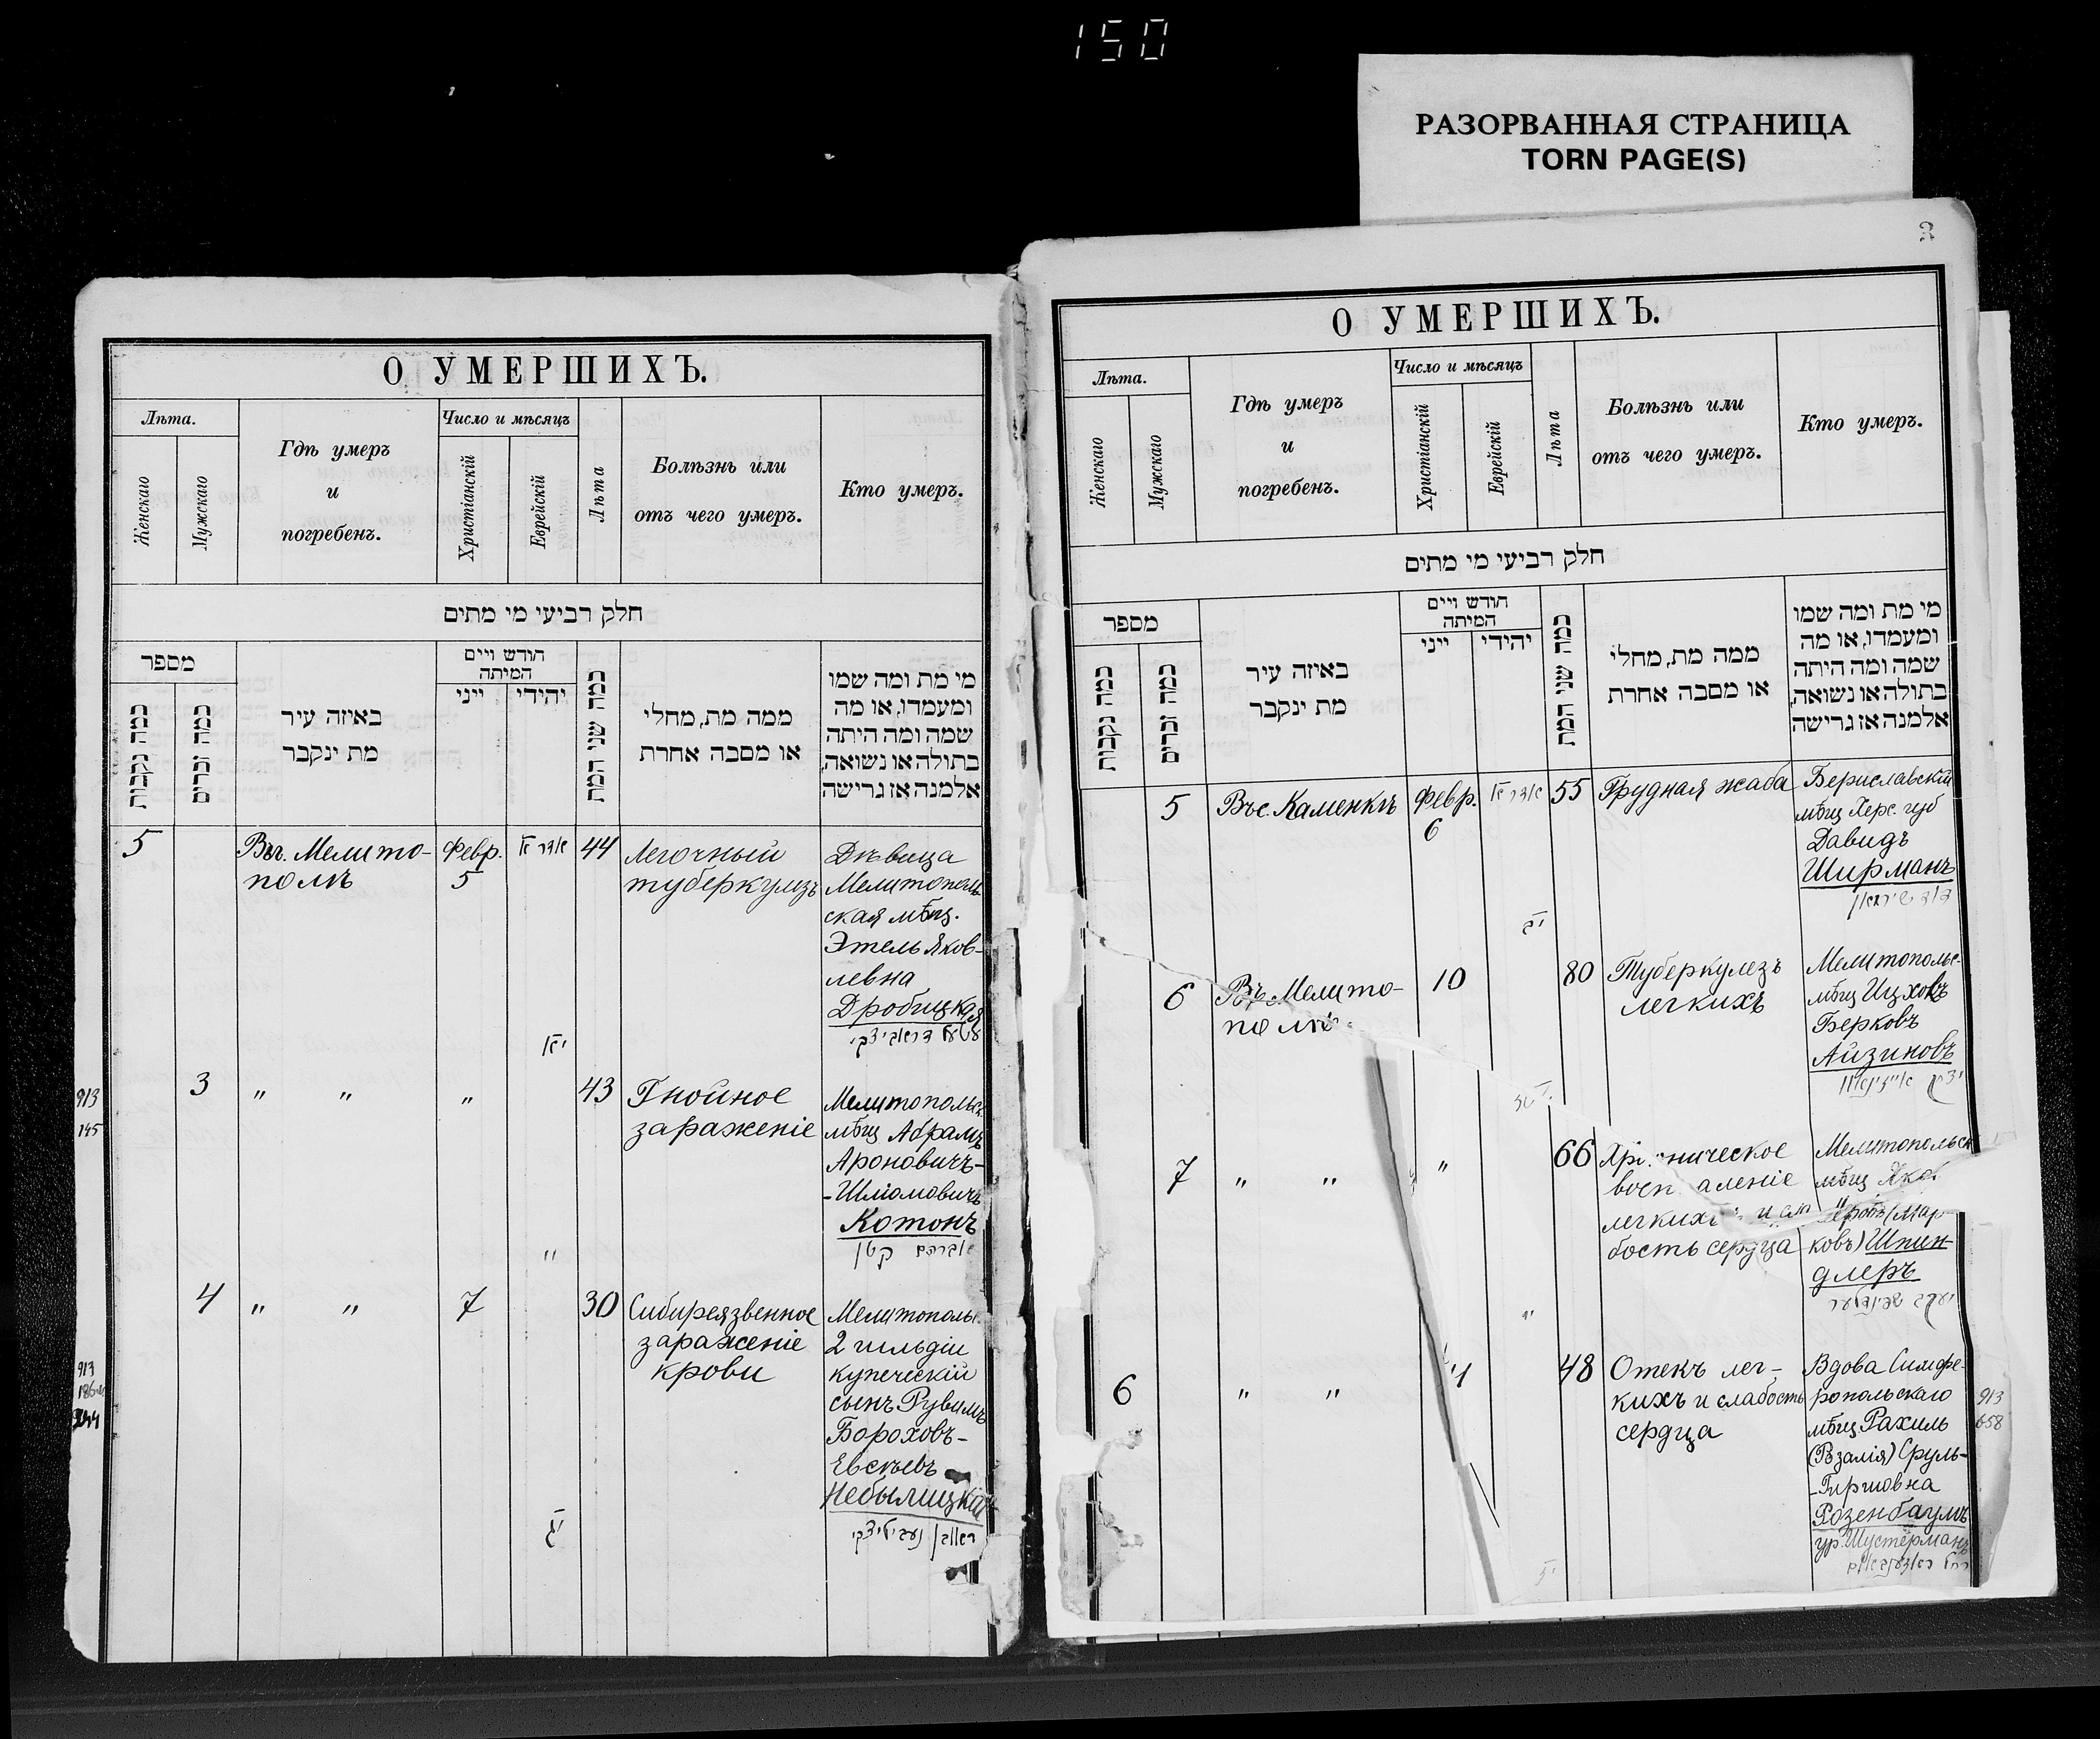 150
РАЗОРВАННАЯ СТРАНИЦА
TORN PAGE(S)
О УМЕРШИХЪ.
Лѣта.
Женскаго
Мужскаго
Гдѣ умеръ
и
погребенъ.
Число и мѣсяцъ
Христіанскій
Еврейскій
Лѣта
Болѣзнь или
отъ чего умеръ.
Кто умеръ.
חלק רביעי מי מתים
מספר
כמה נקבות
כמה זכרים
באיזה עיר
מת ינקבר
חודש ויים
המיתה
ייני
יהידי
כמה שני המת
ממה מת, מחלי
או מסבה אחרת
מי מת ומה שמו
ומעמדו, או מה
שמה ומה היתה
בתולה או נשואה,
אלמנה אז גרישה
5
Въ г. Мелито-
полѣ
Февр.
5
אדר א
יא
44
Легочный
туберкулезъ
Дѣвица
Мелитополь
ская мѣщ.
Этель Яков-
левна
Дробицкая
עטעל דראביצקי
913
145
3
" "
"
"
43
Гнойное
зараженіе
Мелитопольск.
мѣщ Абрамъ
Ароновичъ-
-Шліомовичъ
Котонъ
אברהם קטן
913
4
" "
7
יג
30
Сибиреязвенное
зараженіе
крови
Мелитопольс.
2 гильдіи
купеческій
сынъ Рувимъ
Бороховъ-
Евсѣевъ
Небылицкій
ראובן נעביליצקי
3
О УМЕРШИХЪ.
Лѣта.
Женскаго
Мужскаго
Гдѣ умеръ
и
погребенъ.
Число и мѣсяцъ
Христіанскій
Еврейскій
Лѣта
Болѣзнь или
отъ чего умеръ.
Кто умеръ.
חלק רביעי מי מתים
מספר
כמה נקבות
כמה זכרים
באיזה עיר
מת ינקבר
חודש ויים
המיתה
ייני
יהידי
כמה שני המת
ממה מת, מחלי
או מסבה אחרת
מי מת ומה שמו
ומעמדו, או מה
שמה ומה היתה
בתולה או נשואה,
אלמנה אז גרישה
5
Въ с. Каменкѣ
Февр.
6
אדר א
יב
55
Грудная жаба
Бериславскій
мѣщ Херс. губ
Давидъ
Ширманъ
דוד שירמאן
6
Въ г. Мелито-
полѣ
10
80
Туберкулезъ
легкихъ
Мелитопольс.
мѣщ Ицховъ
Берковъ
Айзиковъ
7
" "
"
"
66
Хроническое
воспаленіе
легкихъ и сла
бость сердца
Мелитопольск
мѣщ
ковъ) Шпин-
длеръ
יעקב שפינדלער
6
" "
48
Отекъ лег-
кихъ и слабость
сердца
Вдова Симфе-
ропольскаго
мѣщ Рахиль
(Розалія) Сруль-
-Гиршовна
Розенбаумъ
ур. Шустерманъ
רחל ראזענבאום
913
658